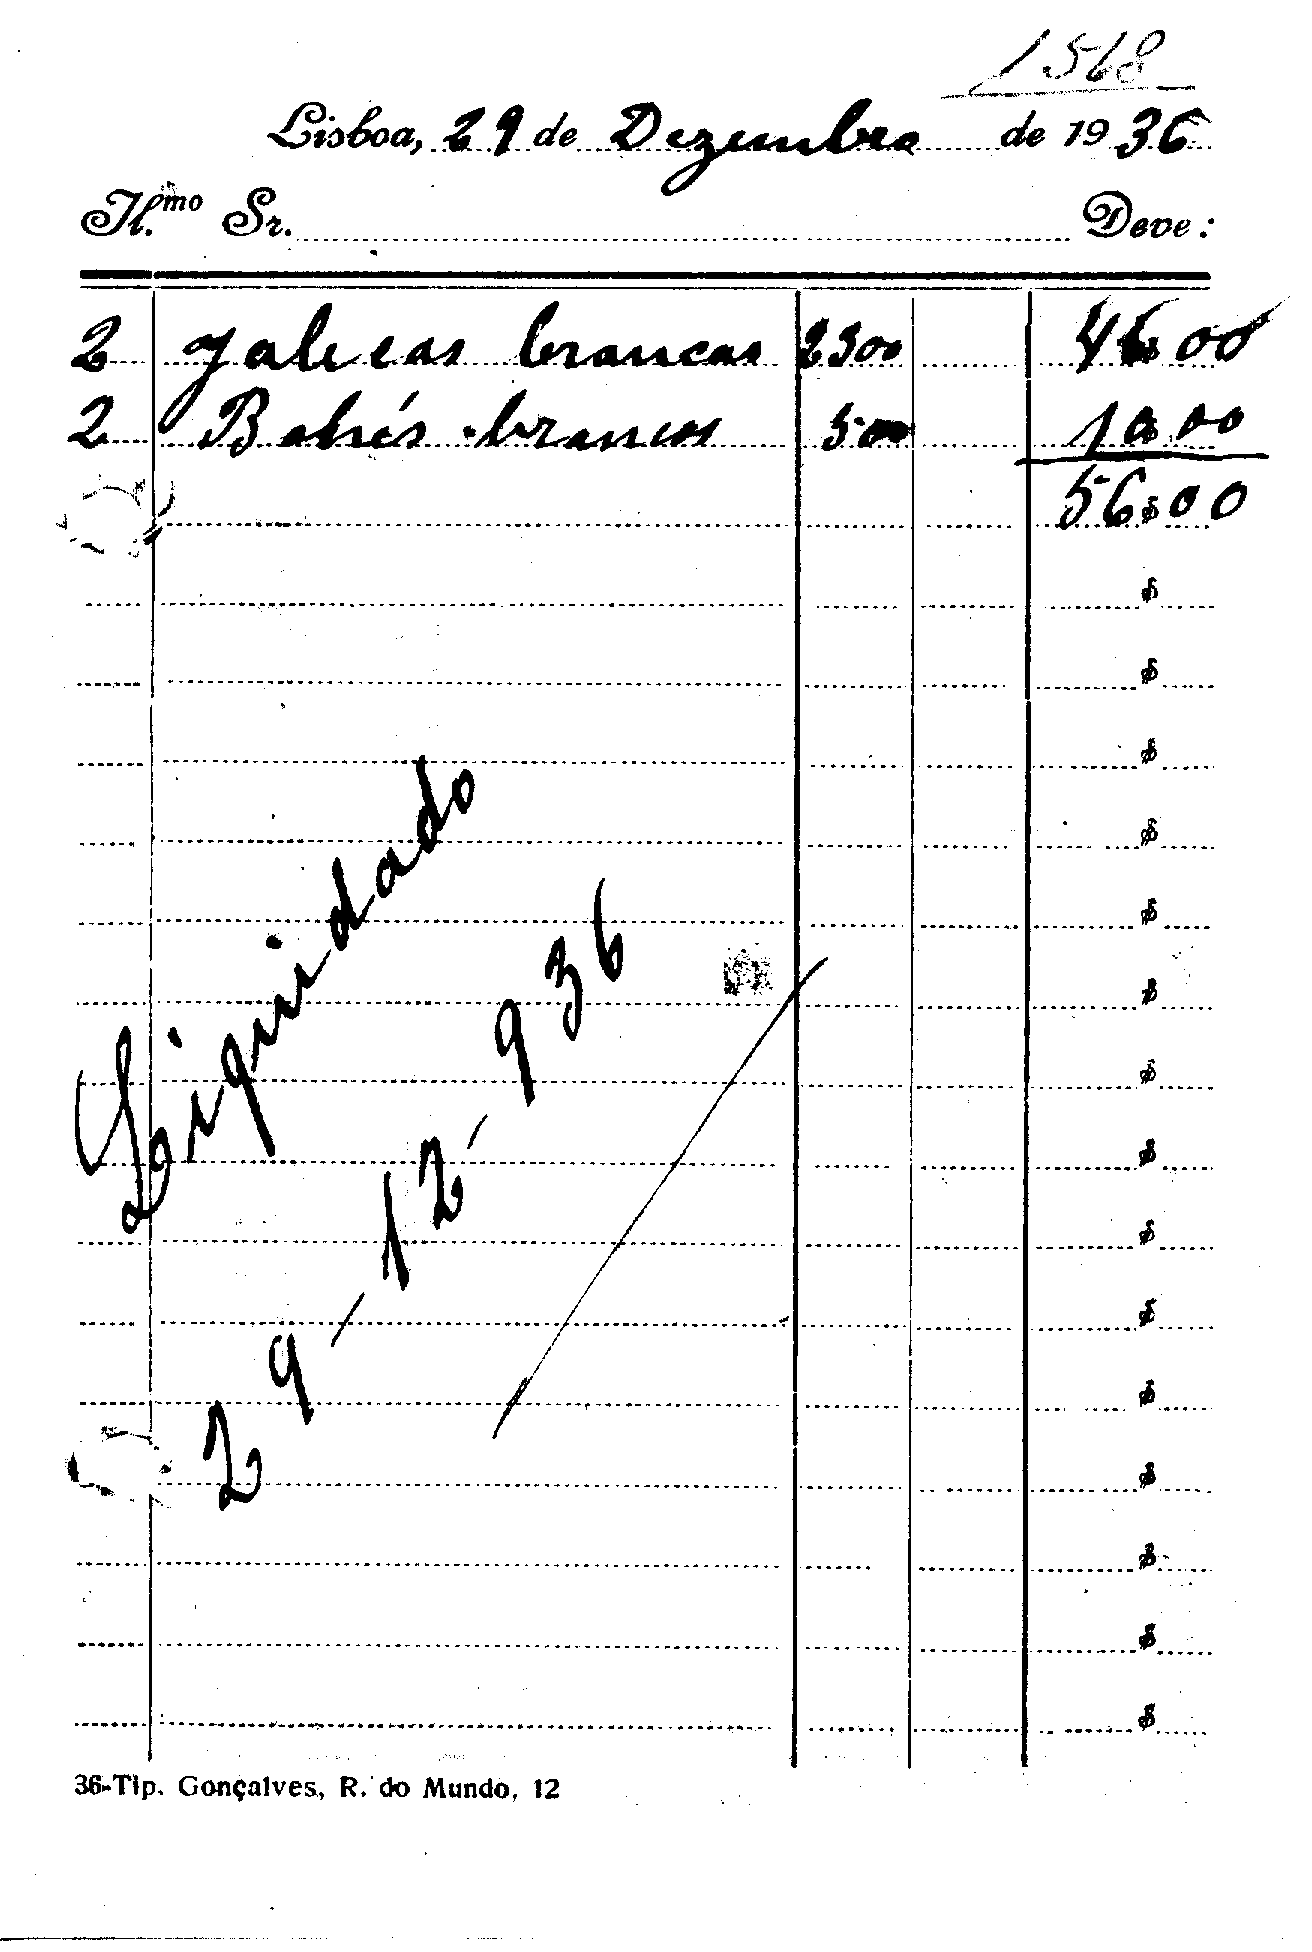 1568
Lisboa, 29 de Dezembro de 1936
Il.mo Sr. Deve:
2 Jalecas brancas 2300 46$00
2 Bonés brancos 500 10$00
56$00
$
$
$
$
$
$
$
$
$
$
$
$
$
$
$
Liquidado
29-12-936
36-Tip. Gonçalves, R. do Mundo, 12